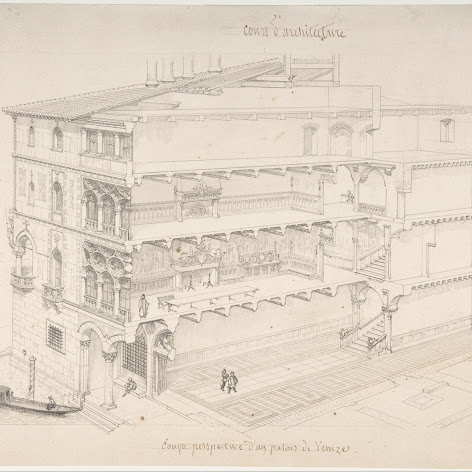 Cours d'architecture
Coupe perspective d'un palais de Venise.